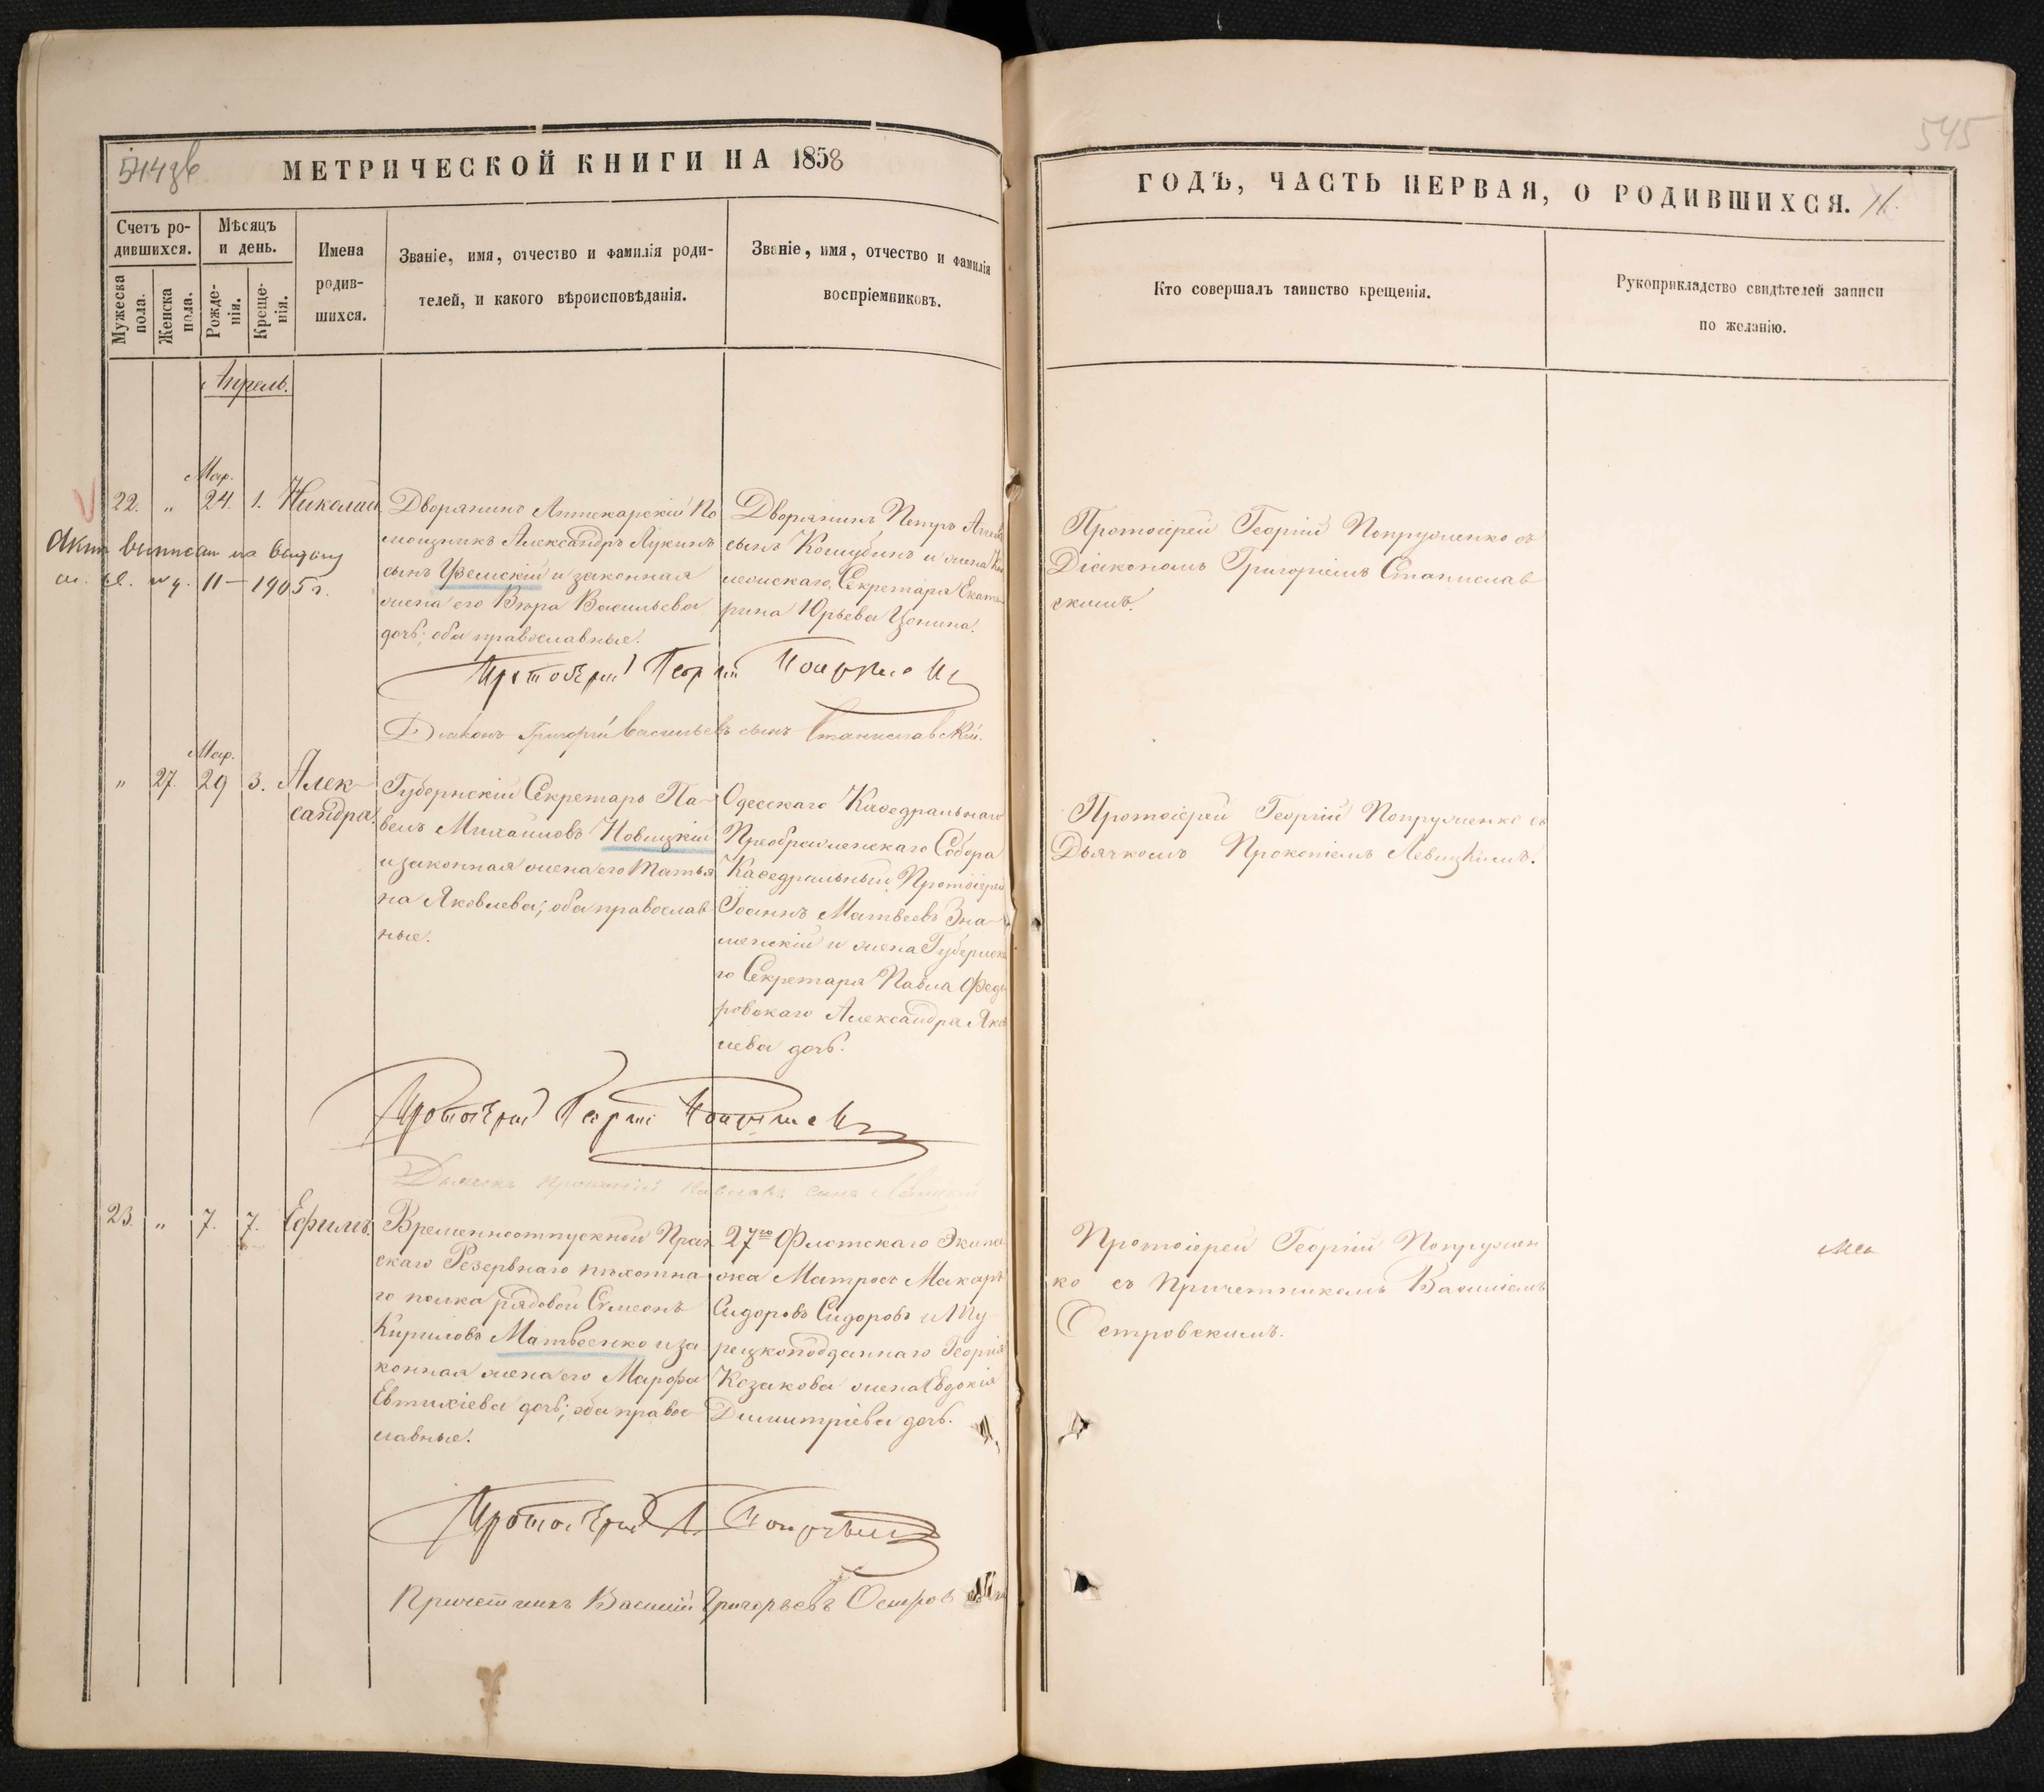 МЕТРИЧЕСКОЙ КНИГИ НА 1858
ГОДЪ, ЧАСТЬ ПЕРВАЯ, О РОДИВШИХСЯ.
545
Счетъ ро-
дившихся.
Мѣсяцъ
и день.
Мужеска
пола.
Женска
пола.
Рожде-
нія.
Креще-
нія.
Имена
родив-
шихся.
Званіе, имя, отчество и фамилія роди-
телей, и какого вѣроисповѣданія.
Званіе, имя, отчество и фамилія
воспріемниковъ.
Кто совершалъ таинство крещенія.
Рукоприкладство свидѣтелей записи
по желанію.
Апрель.
Мар.
22. " 24. 1. Николай
11 – 1905 г.
Дворянинъ Аптекарскій По
мощникъ Александръ Лукинъ
сынъ Уземскій и законная
жена его Вѣра Васильева
дочь; оба православные.
Дворянинъ Петръ
сынъ и жена
Секретаря Екате
рина Юрьева Цонина.
Протоіерей Георгій Попруженко съ
Діакономъ Григоріемъ Станислав
скимъ.
Протоіерей Георгій Попруженко
Діаконъ Григорій Васильевъ сынъ Станиславскій.
Мар.
" 27. 29 3. Алек-
сандра.
Губернскій Секретарь Па-
велъ Михаиловъ Новицкій
и законная жена его Татья
на Яковлева; оба православ
ные.
Одесскаго Каѳедральнаго
Преображенскаго Собора
Каѳедральный Протоіерей
Іоаннъ Матвеевъ Зна-
менскій и жена Губернска
го Секретаря Павла Федо
ровскаго Александра Яков
лева дочь.
Протоіерей Георгій Попруженко съ
Дьячкомъ Прокопіемъ Левицкимъ.
Протоіерей Георгій Попруженко
Дьячекъ Прокопій Павловъ сынъ Левицкій
23. " 7. 7. Ефимъ.
Временноотпускной Праж
скаго Резервнаго пѣхотна
го полка рядовой Симеонъ
Кириловъ Матвеенко и за
конная жена его Марфа
Евтихіева дочь; оба право-
славные.
27го Флотскаго Экипа
жа Матросъ Макаръ
Сидоровъ Сидоровъ и Ту-
рецкоподданнаго Георгія
Козакова жена Евдокія
Димитріева дочь.
Протоіерей Георгій Попружен
ко съ Причетникомъ Василіемъ
Островскимъ.
Протоіерей Г. Попруженко
Причетникъ Василій Григорьевъ Островскій